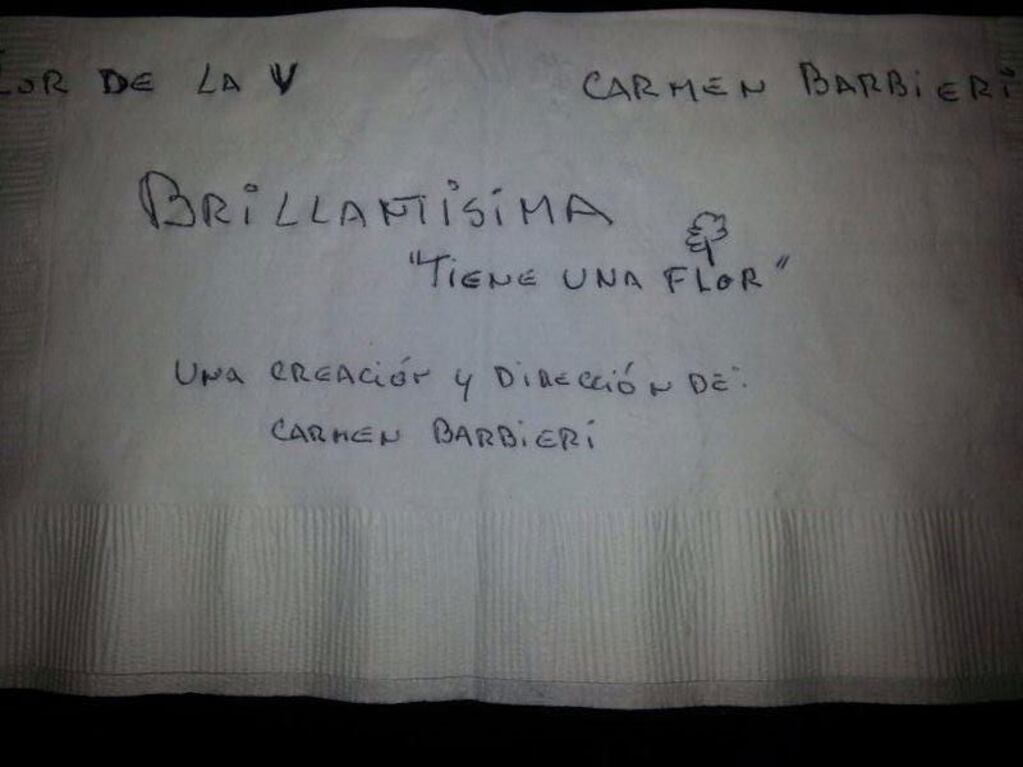 LOR DE LA V CARMEN BARBiERi
BRiLLANTiSiMA
"TiENE UNA FLOR"
UNA CREACiÓN y DiRECCiÓN DE:
CARMEN BARBiERi